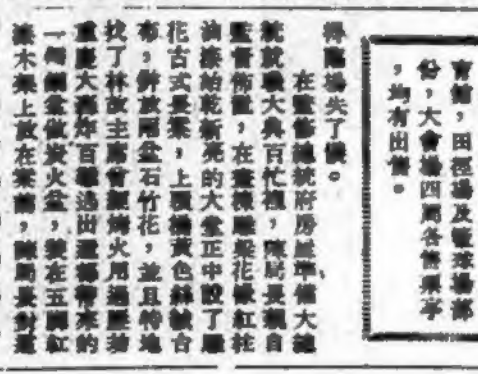 育館，田徑場及籃球場部
份，大會場四周各售票亭
，均有出售。
得臨場失了儀。
在監修總統府房屋準備大總
統就職大典百忙裡，陳局長親自
監督佈置，在畫棟雕梁花板紅柱
油漆始乾新亮的大堂正中設了雕
花古式長案，上覆橘黃色絲絨台
布，供放兩盆石竹花，並且特地
找了林故主席曾經烤火用過歷劫
重慶大轟炸百難逃出還都帶來的
一個銅盆做炭火盆，裝在五腳紅
漆木架上放在案南，陳局長對這